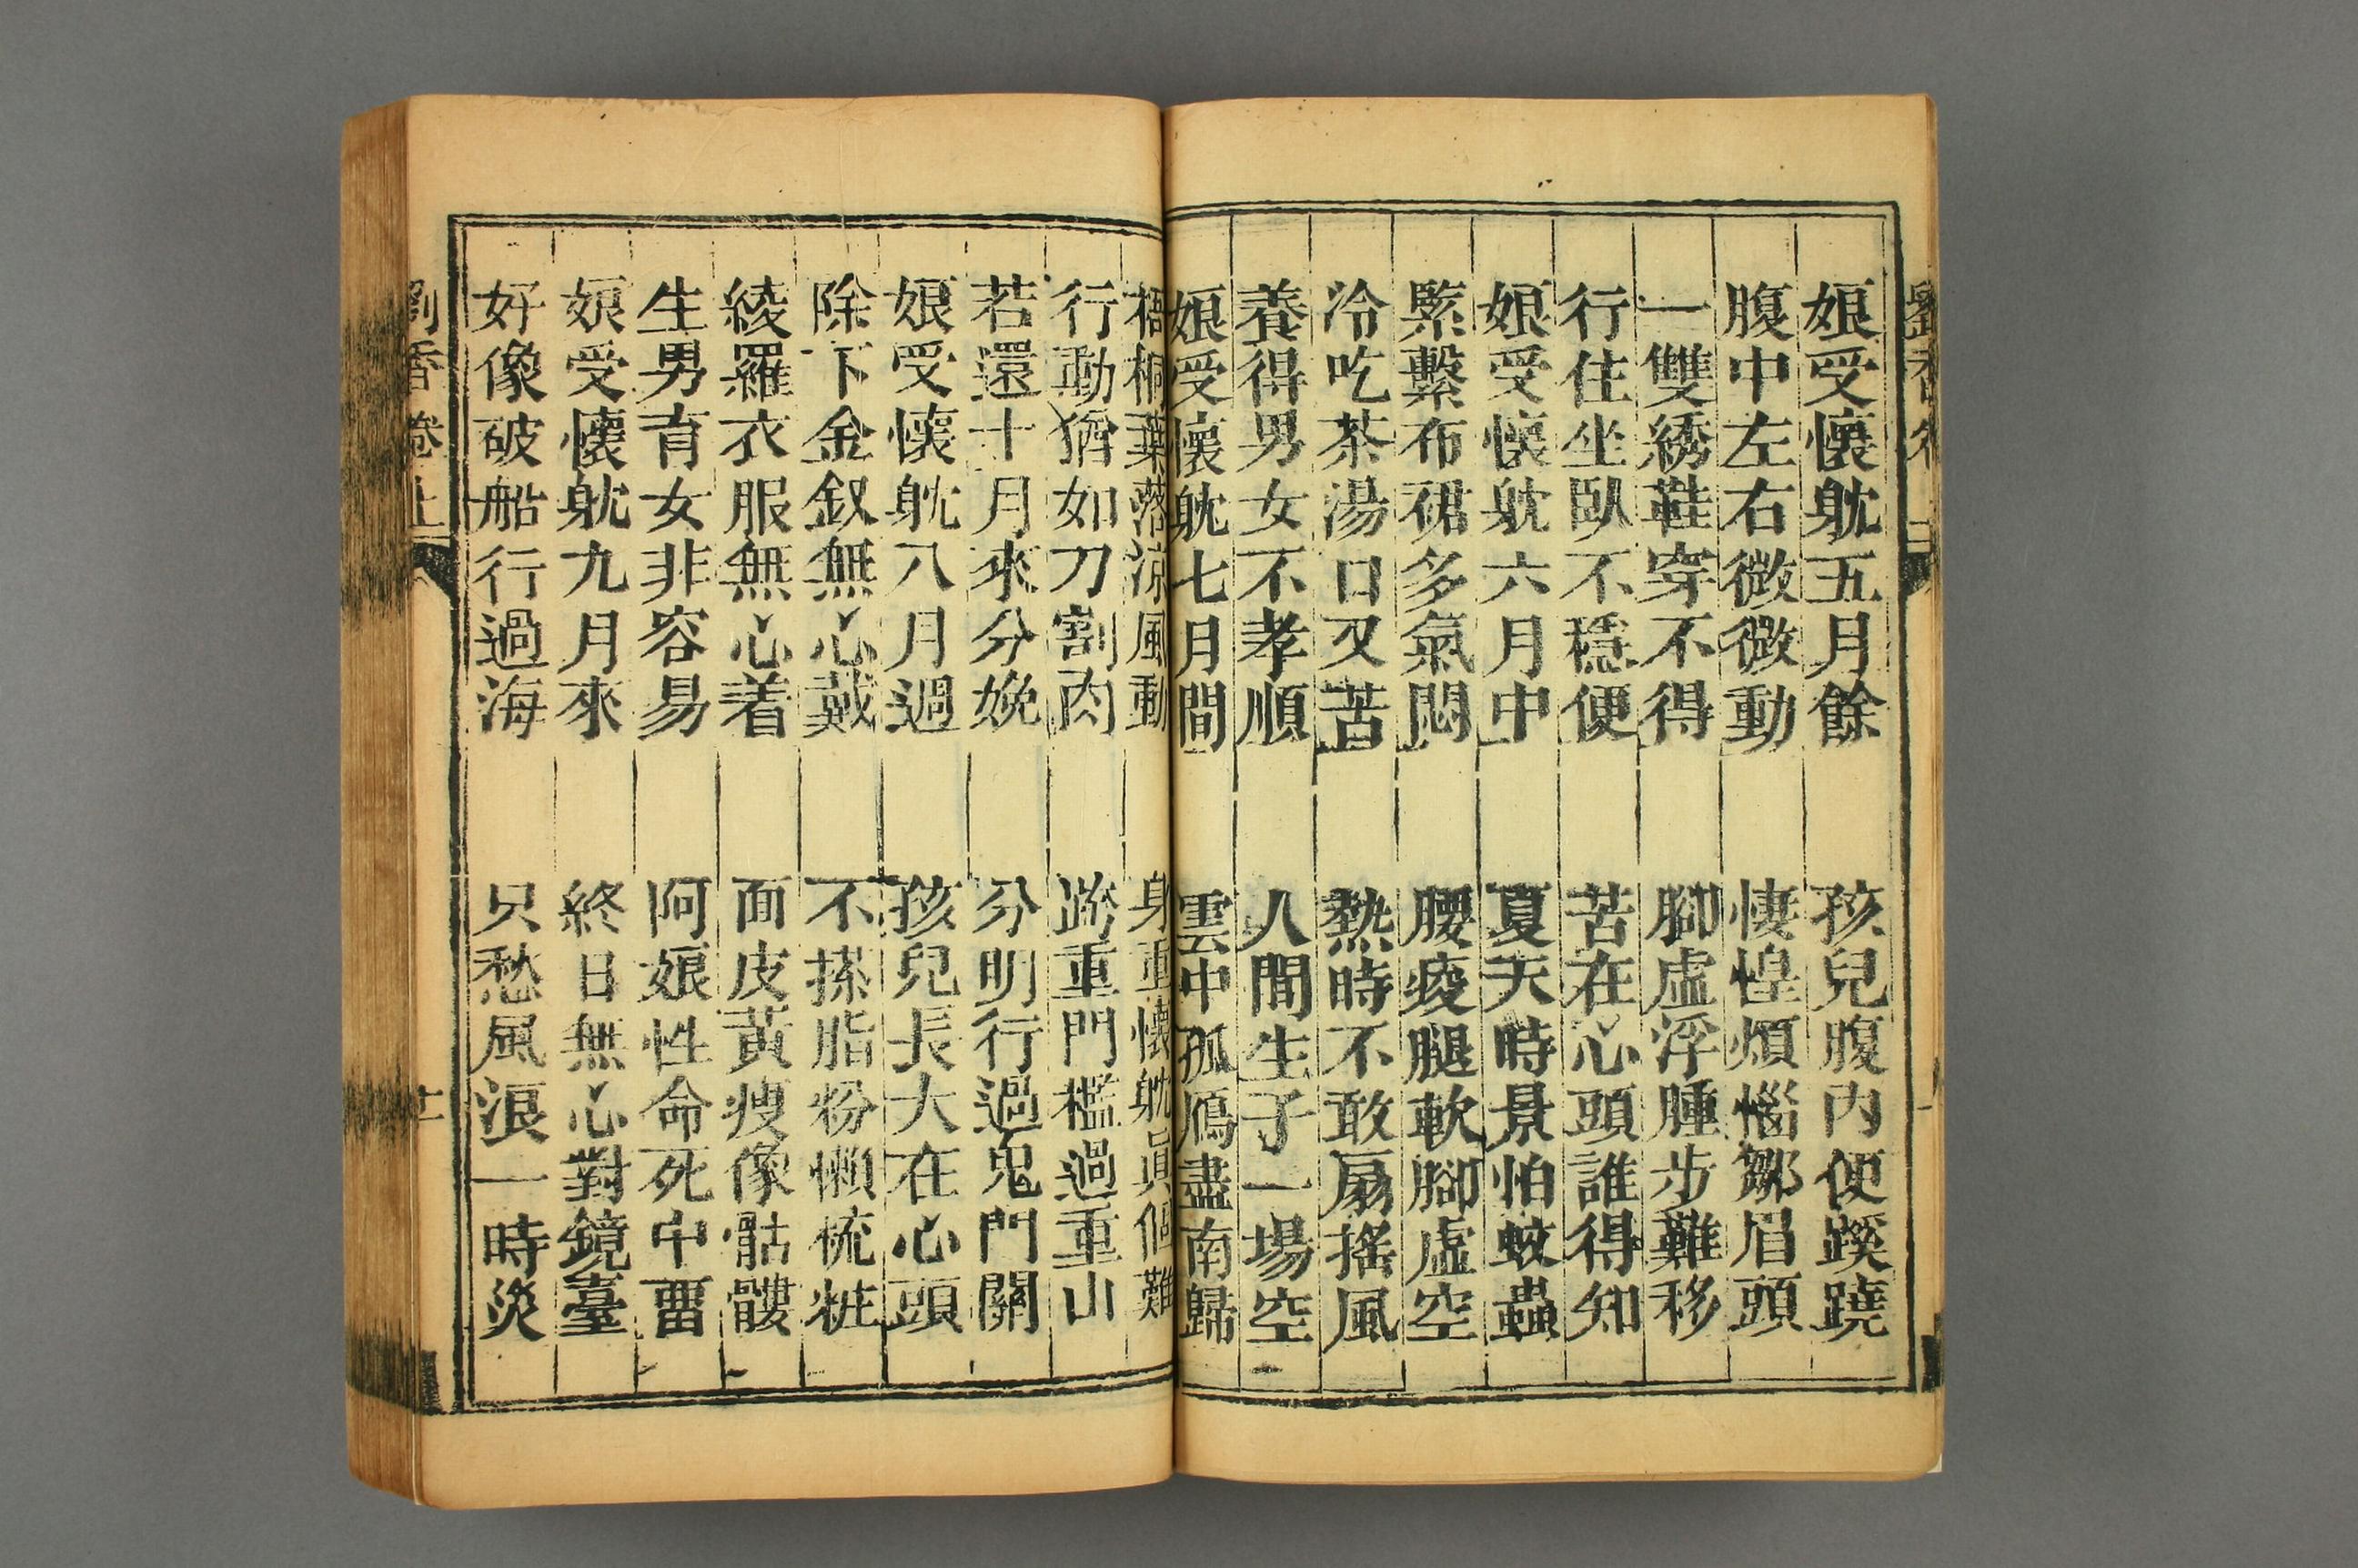 娘受懷躭五月餘　孩兒腹內便蹊蹺
腹中左右微微動　悽惶煩惱皺眉頭
一雙綉鞋穿不得　腳虛浮腫步難移
行住坐臥不穩便　苦在心頭誰得知
娘受懷躭六月中　夏天時景怕蚊蟲
緊繫布裙多氣悶　腰痠腿軟腳虛空
冷吃茶湯口又苦　熱時不敢扇搖風
養得男女不孝順　人間生子一場空
娘受懷躭七月間　雲中孤鴈盡南歸
梧桐葉落涼風動　身重懷躭眞個難
行動猶如刀割肉　跨重門檻過重山
若還十月來分娩　分明行過鬼門關
娘受懷躭八月過　孩兒長大在心頭
除下金釵無心戴　不搽脂粉懶梳粧
綾羅衣服無心着　面皮黃瘦像骷髏
生男育女非容易　阿娘性命死中畱
娘受懷躭九月來　終日無心對鏡臺
好像破船行過海　只愁風浪一時災
劉香卷上　十二